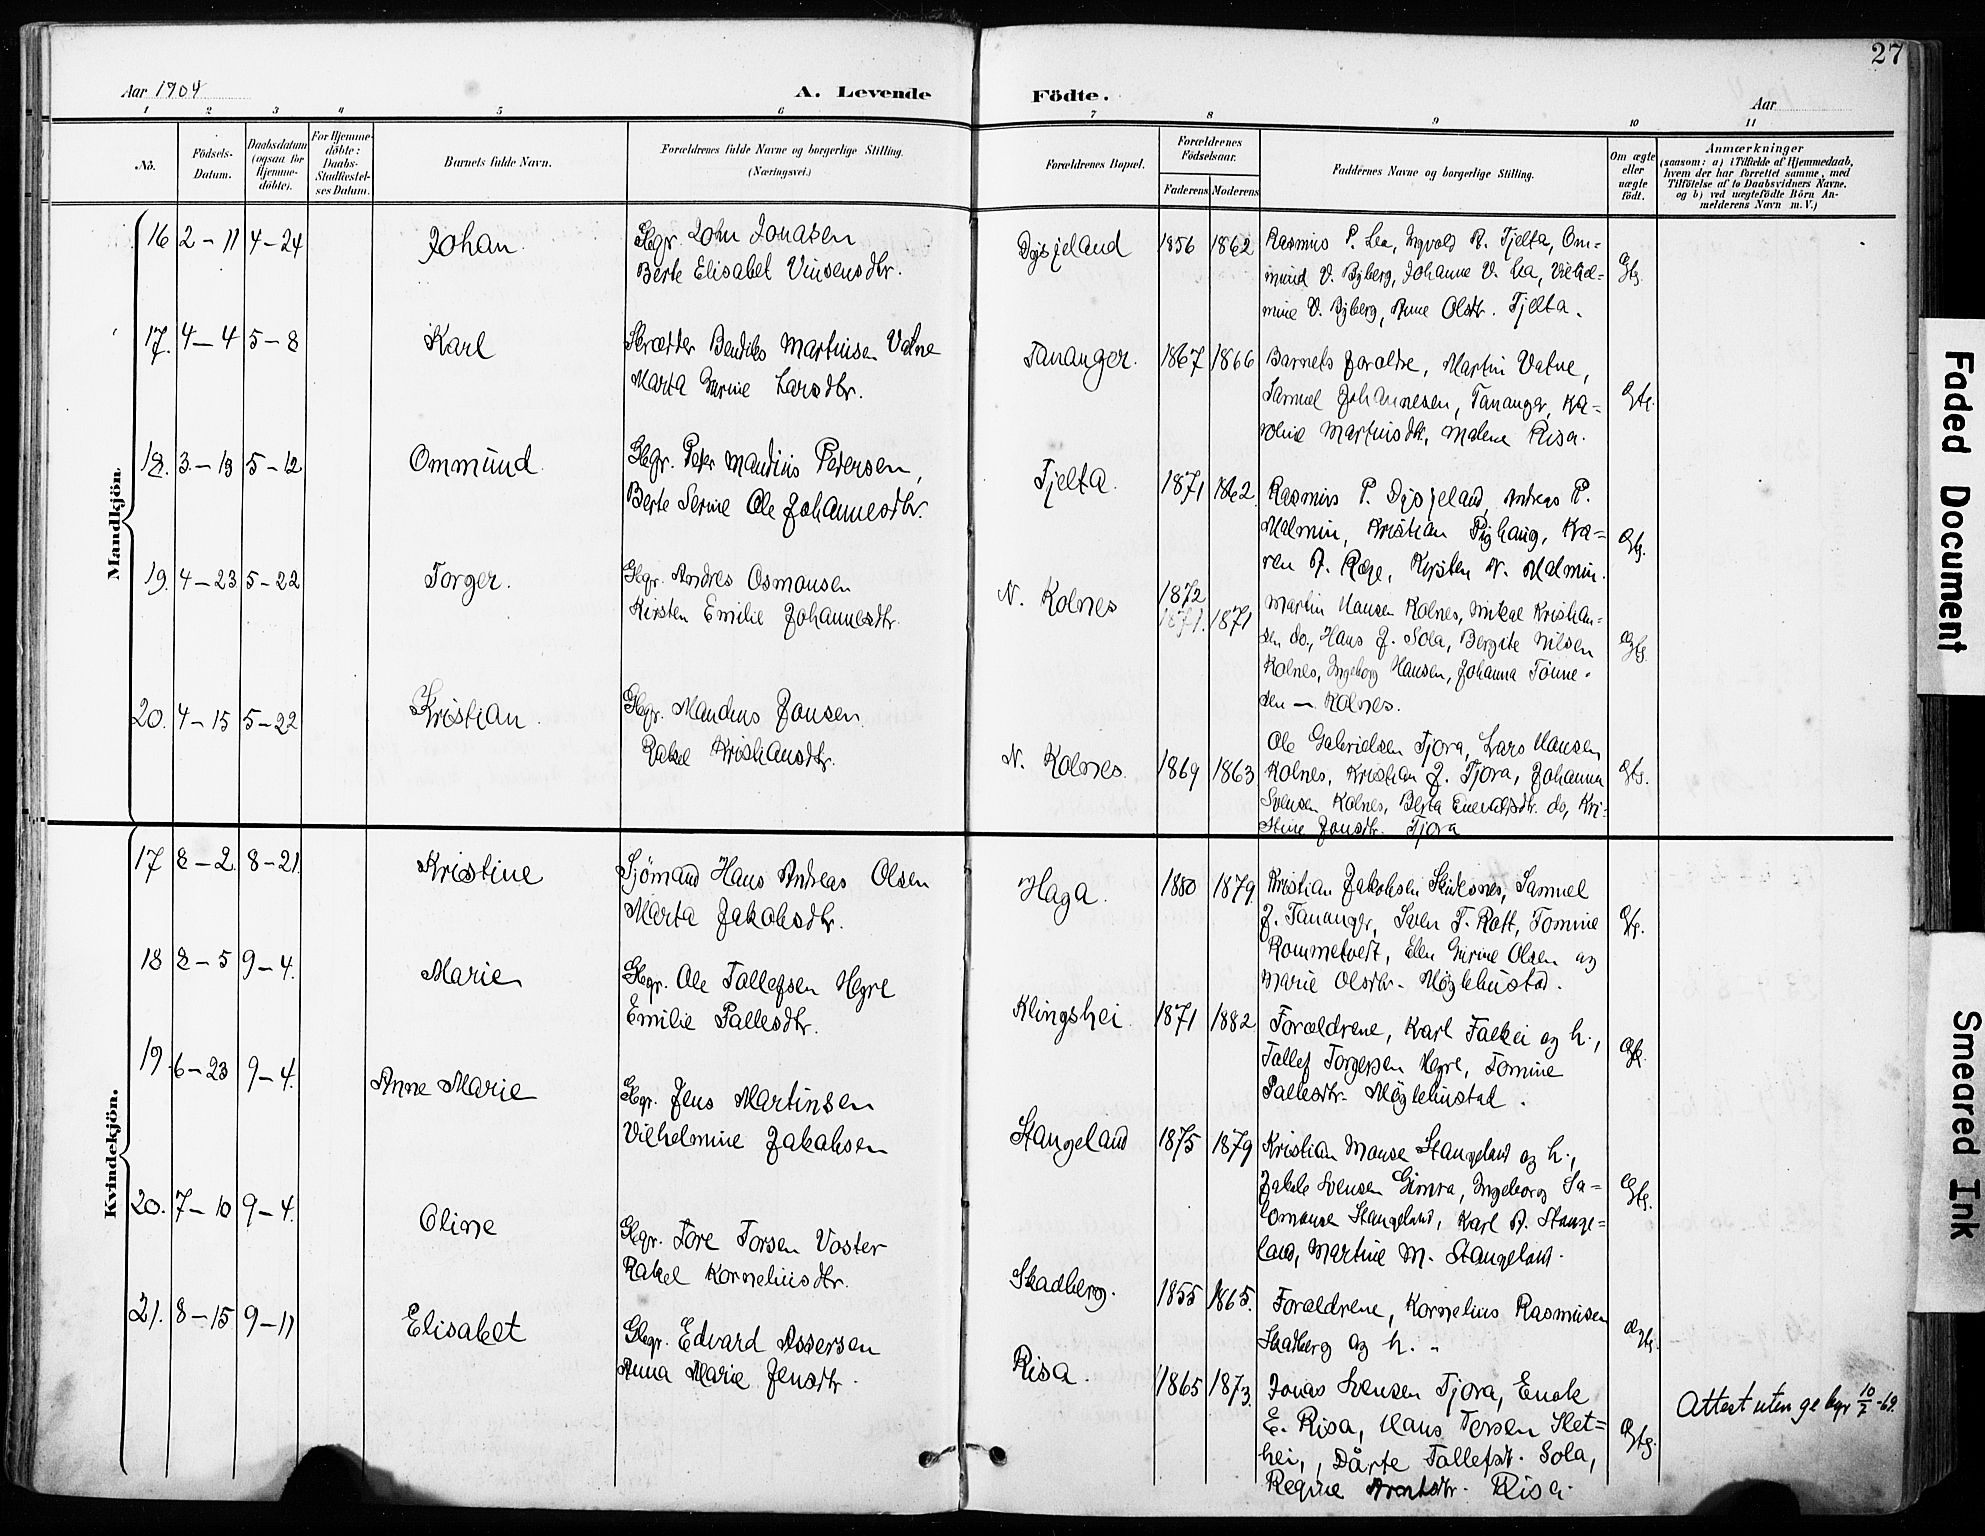 27
Aar 1904
A. Levende Födte.
Aar
1 2 3 4 5 6 7 8 9 10 11
No.
Födsels-Datum.
Daabsdatum (ogsaa for Hjemme-döbte).
For Hjemme-döbte: Daabs-Stadfæstel-ses Datum.
Barnets fulde Navn.
Forældrenes fulde Navne og borgerlige Stilling. (Næringsvei.)
Forældrenes Bopæl.
Forældrenes Födselsaar.
Faderens Moderens
Faddernes Navne og borgerlige Stilling.
Om ægte eller uægte födt.
Anmærkninger
(saasom: a) i Tilfælde af Hjemmedaab, hvem der har forrettet samme, med Tilföielse af to Daabsvidners Navne, og b) ved uægtefödte Börn An-melderens Navn m. V.)
Mandkjön.
16 2-11 4-24 Johan
Gbgr. John Jonasen
Berte Elisabet Vinsensdtr.
Dysjeland 1856 1862
Rasmus P. Lea, Ingvald R. Tjelta, Om=
mund V. Byberg, Johanne V. Lea, Vilhel=
mine V. Byberg, Anne Olsdtr. Tjelta.
Ægte.
17. 4-4 5-8 Karl
Skrædder Bendiks Martinsen Vatne
Marta Gurine Larsdtr.
Tananger. 1867 1866
Barnets Forældre, Martin Vatne,
Samuel Johannesen, Tananger, Ka=
roline Martinsdtr, Malene Risa.
Ægte.
18. 3-13 5-12 Ommund
Gbgr. Peter Maudius Pedersen,
Berte Serine Ole Johannesdtr.
Tjelta. 1871 1862
Rasmus P. Dysjeland, Andreas P.
Malmin, Kristian Myhaug, Ka=
ren A. Rege, Kirsten N. Malmin.
Ægte.
19. 4-23 5-22 Torger.
Gbgr. Andres Osmonsen
Kirsten Emilie Johannesdtr.
N. Kolnes 1872 1871. 1871
Martin Hansen Kolnes, Mikal Kristian=
sen do, Hans J. Sola, Bergite Nilsen
Kolnes, Ingeborg Hansen, Johanna Tönne-
sen - Kolnes.
Ægte.
20. 4-15 5-22 Kristian.
Gbgr. Maudius Jonsen
Rakel Kristiansdtr.
N. Kolnes. 1869 1863
Ole Gabrielsen Tjora, Lars Hansen
Kolnes, Kristian J. Tjora, Johanna
Svensen Kolnes, Berta Enevaldsdtr. do, Kri-
stine Jonsdtr. Tjora
Ægte.
Kvindekjön.
17 8-2 8-21. Kristine
Sjömand Hans Andreas Olsen
Marta Jakobsdtr.
Haga. 1880 1879.
Kristian Jakobsen Skidsnes, Samuel
J. Tananger, Sven T. Rott, Tomine
Rommetvedt, Ellen Gurine Olsen og
Marie Olsdtr. Möglehustad.
Ægte.
18 8-5 9-4. Marie
Gbgr. Ole Tallefsen Hegre
Emilie Pallesdtr.
Klingshei. 1871 1882
Forældrene, Karl Falkei og h.,
Tallef Torgersen Hegre, Tomine
Pallesdtr. Möglehustad.
Ægte.
19. 6-23 9-4. Anne Marie
Gbgr. Jens Martinsen
Vilhelmine Jakobsen
Stangeland 1875 1879
Kristian Monse Stangeland og h.,
Jakob Svensen Gimra, Ingeborg Sa=
lomonsen Stangeland, Karl A. Stange=
land, Martine M. Stangeland.
Ægte.
20. 7-10 9-4. Oline
Gbgr. Tore Torsen Voster
Rakel Korneliusdtr.
Skadberg. 1855 1865.
Forældrene, Kornelius Rasmusen
Skadberg og h.
Ægte.
21. 8-15 9-11 Elisabet
Gbgr. Edvard Assersen
Anna Marie Jensdtr.
Risa. 1865 1873.
Jonas Svensen Tjora, Enok
E. Risa, Hans Torsen Slet=
hei, Dårte Tallefsdt. Sola,
Regine Arntsdtr. Risa.
Ægte.
Attest uten gebyr 10/7-69.
Faded Document
Smeared Ink